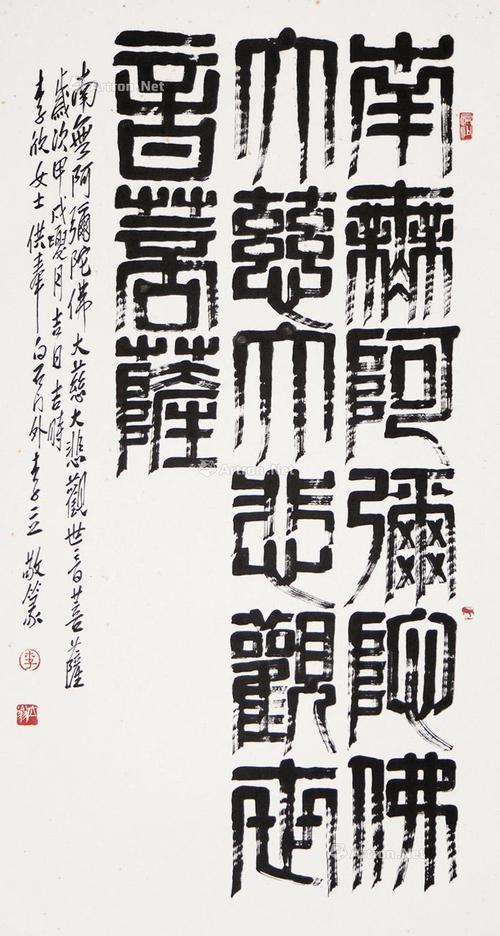 南無阿彌陀佛
大慈大悲觀世
音菩薩
南無阿彌陀佛大慈大悲觀世音菩薩
歲次甲戌夏月吉日吉時
李欣女士供奉白石门外李立敬篆
李
Artron.Net
Artron.Net
Artron.Net
Artron.Net